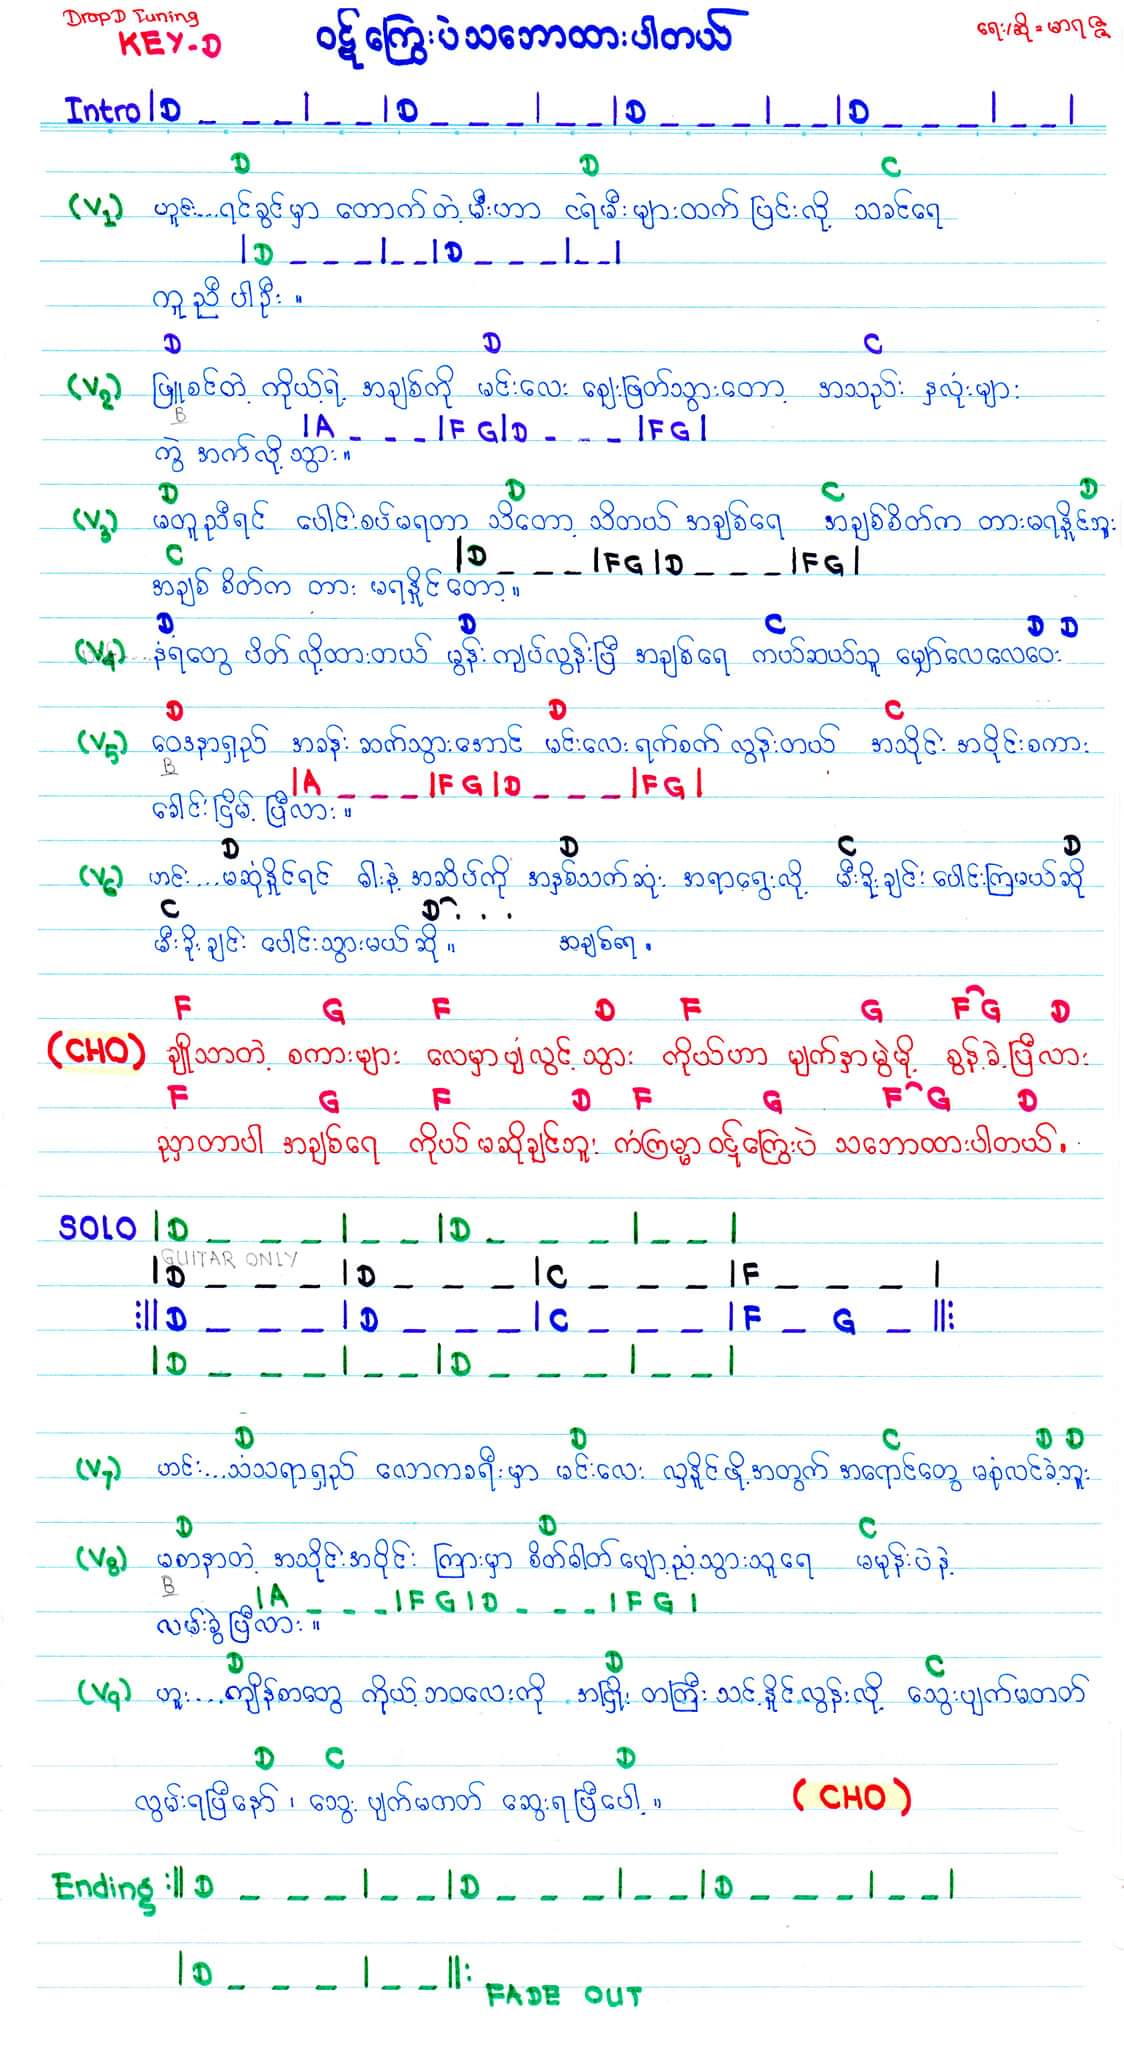 DropD Tuning
KEY-D
ဝဋ်ကြွေးပဲသဘောထားပါတယ်
ရေး/ဆို = မာရဇ္ဇ
Intro |D _ _ _ | _ _ |D _ _ _ | _ _ |D _ _ _ | _ _ |D _ _ _ | _ _ |
D D C
(V1) ဟူး....ရင်ခွင်မှာ တောက်တဲ့မီးဟာ ငရဲမီးများထက် ပြင်းလို့ သခင်ရေ
|D _ _ _ | _ _ |D _ _ _ | _ _ |
ကူညီပါဦး ။
D D C
(V2) ဖြူစင်တဲ့ ကိုယ့်ရဲ့ အချစ်ကို မင်းလေး ဈေးဖြတ်သွားတော့ အသည်း နှလုံးများ
B |A _ _ _ |F G |D _ _ _ |F G |
ကွဲ အက်လို့ သွား။
D D C D
(V3) မတူညီရင် ပေါင်းစပ်မရတာ သိတော့ သိတယ် အချစ်ရေ အချစ်စိတ်က တားမရနိူင်ဘူး
C |D _ _ _ |F G |D _ _ _ |F G |
အချစ် စိတ်က တား မရနိူင်တော့။
D D C D D
(V4) နံရံတွေ ပိတ်လို့ထားတယ် မွန်းကျပ်လွန်းပြီ အချစ်ရေ ကယ်ဆယ်သူ မျှော်လေလေဝေး
D D C
(V5) ဝေဒနာရှည် အခန်း ဆက်သွားအောင် မင်းလေး ရက်စက် လွန်းတယ် အသိုင်း အဝိုင်းစကား
B |A _ _ _ |F G |D _ _ _ |F G |
ခေါင်းငြိမ့် ပြီလား။
D D C D
(V6) ဟင်း....မဆုံနိူင်ရင် ဓါးနဲ့ အဆိပ်ကို အနှစ်သက်ဆုံး အရာရွေးလို့ မီးခိုးချင်း ပေါင်းကြမယ်ဆို
C D . . .
မီးခိုးချင်း ပေါင်းသွားမယ်ဆို ။ အချစ်ရေ .
F G F D F G F G D
(CHO) ချိုသာတဲ့ စကားများ လေမှာပျံလွင့်သွား ကိုယ်ဟာ မျက်နှာမွဲမို့ စွန့်ခဲ့ပြီလား
F G F D F G F G D
ညှာတာပါ အချစ်ရေ ကိုယ် မဆိုချင်ဘူး ကံကြမ္မာ ဝဋ်ကြွေးပဲ သဘောထားပါတယ် .
SOLO |D _ _ _ | _ _ |D _ _ _ | _ _ |
GUITAR ONLY
|D _ _ _ |D _ _ _ |C _ _ _ |F _ _ _ |
:||D _ _ _ |D _ _ _ |C _ _ _ |F _ G _ ||:
|D _ _ _ | _ _ |D _ _ _ | _ _ |
D D C D D
(V7) ဟင်း....သံသရာရှည် လောကခရီးမှာ မင်းလေး လှနိူင်ဖို့ အတွက် အရောင်တွေ မစုံလင်ခဲ့ဘူး
D D C
(V8) မစာနာတဲ့ အသိုင်းအဝိုင်း ကြားမှာ စိတ်ဓါတ်ပျော့ညံ့သွားသူရေ မမုန်းပဲနဲ့
B |A _ _ _ |F G |D _ _ _ |F G |
လမ်းခွဲပြီလား ။
D D C
(V9) ဟူး....ကျိန်စာတွေ ကိုယ့်ဘဝလေးကို အငြှိုး တကြီး သင့်နိူင်လွန်းလို့ သွေးပျက်မတတ်
D C D
လွမ်းရပြီနော် ၊ သွေး ပျက်မတတ် ဆွေးရပြီပေါ့ ။ (CHO)
Ending :||D _ _ _ | _ _ |D _ _ _ | _ _ |D _ _ _ | _ _ |
|D _ _ _ | _ _ ||: FADE OUT